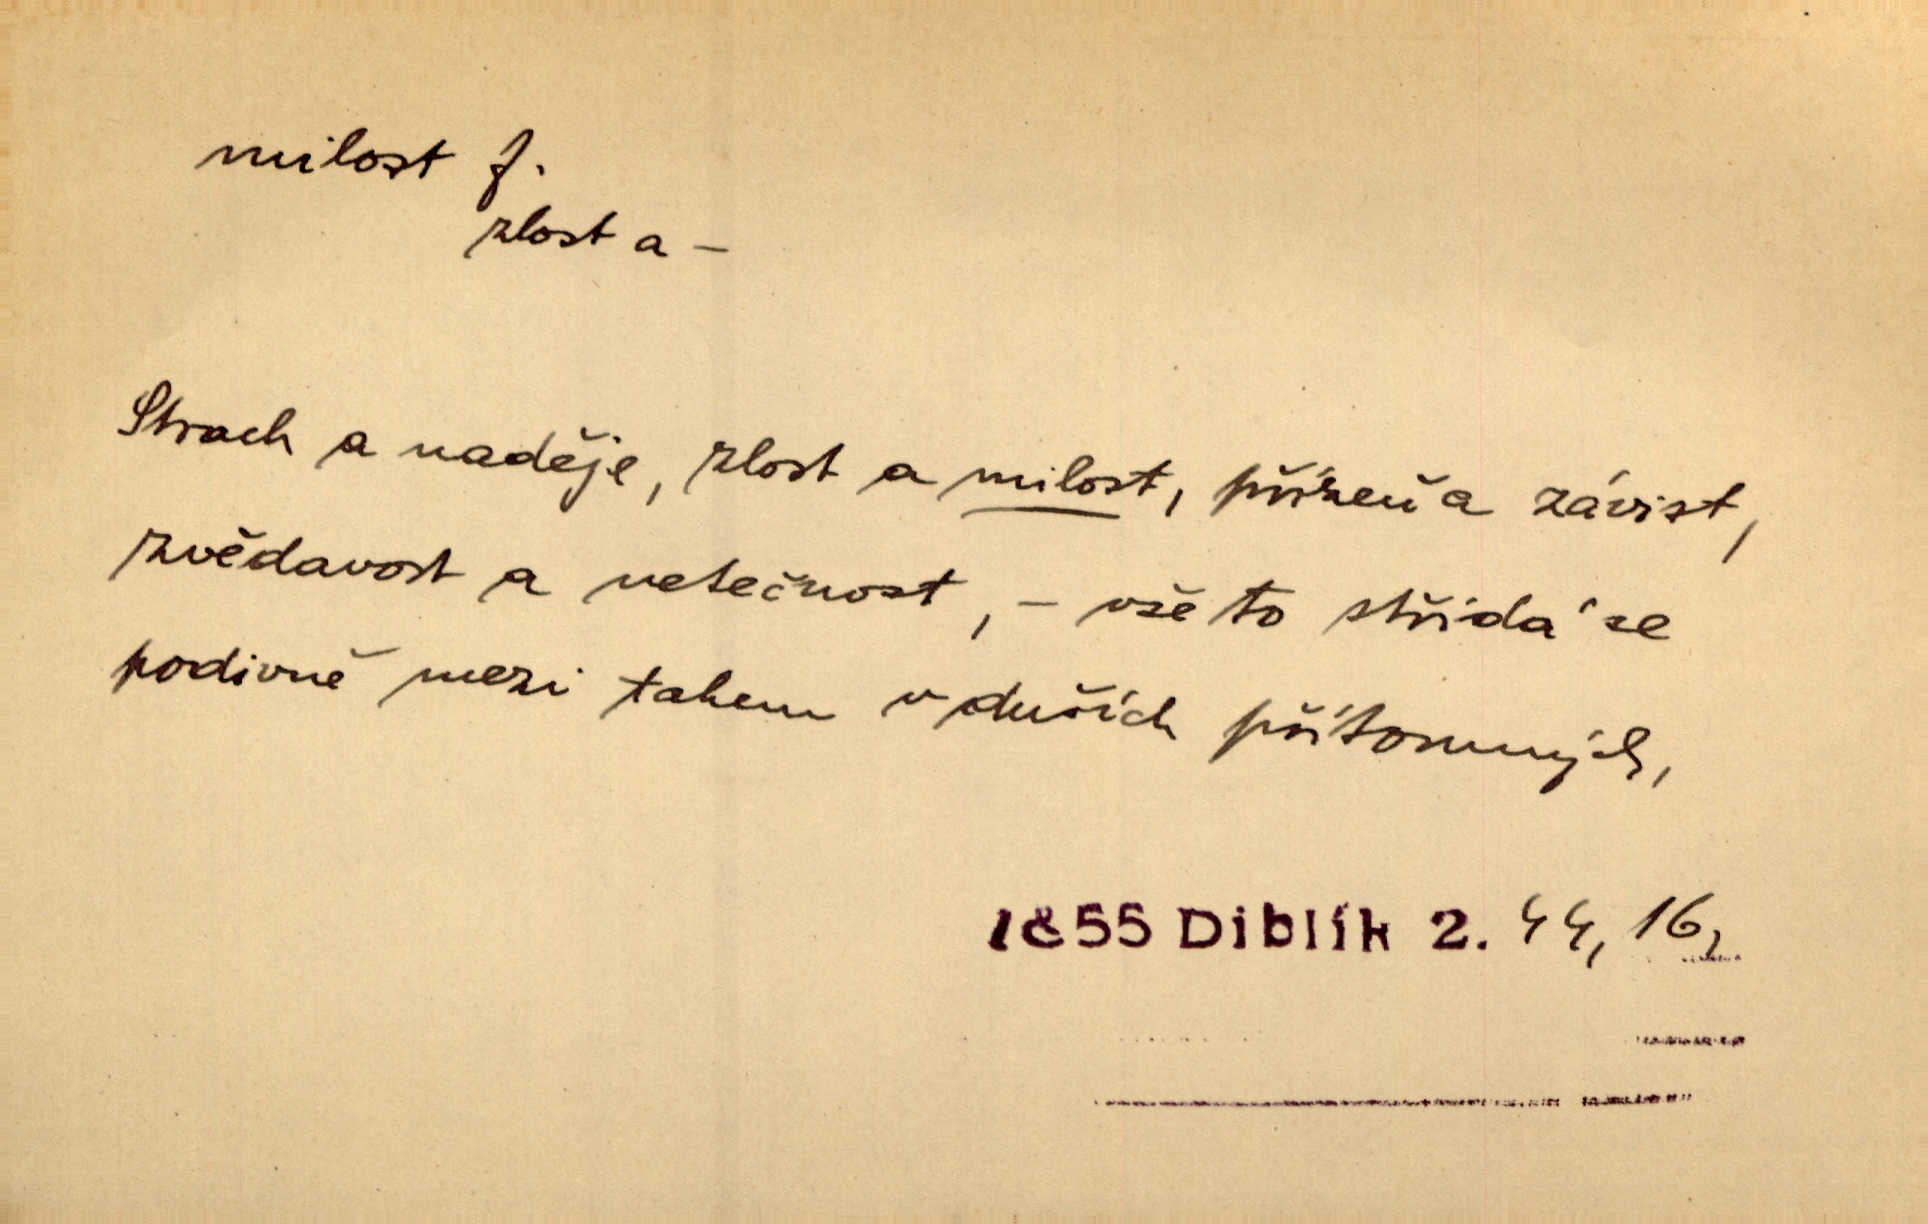 milost f.
zlost a –
Strach a naděje, zlost a milost, přízeň a závist,
zvědavost a netečnost, – vše to střídá se
podivně mezi tahem v duších přítomných,
1855 Diblík 2. 44, 16,